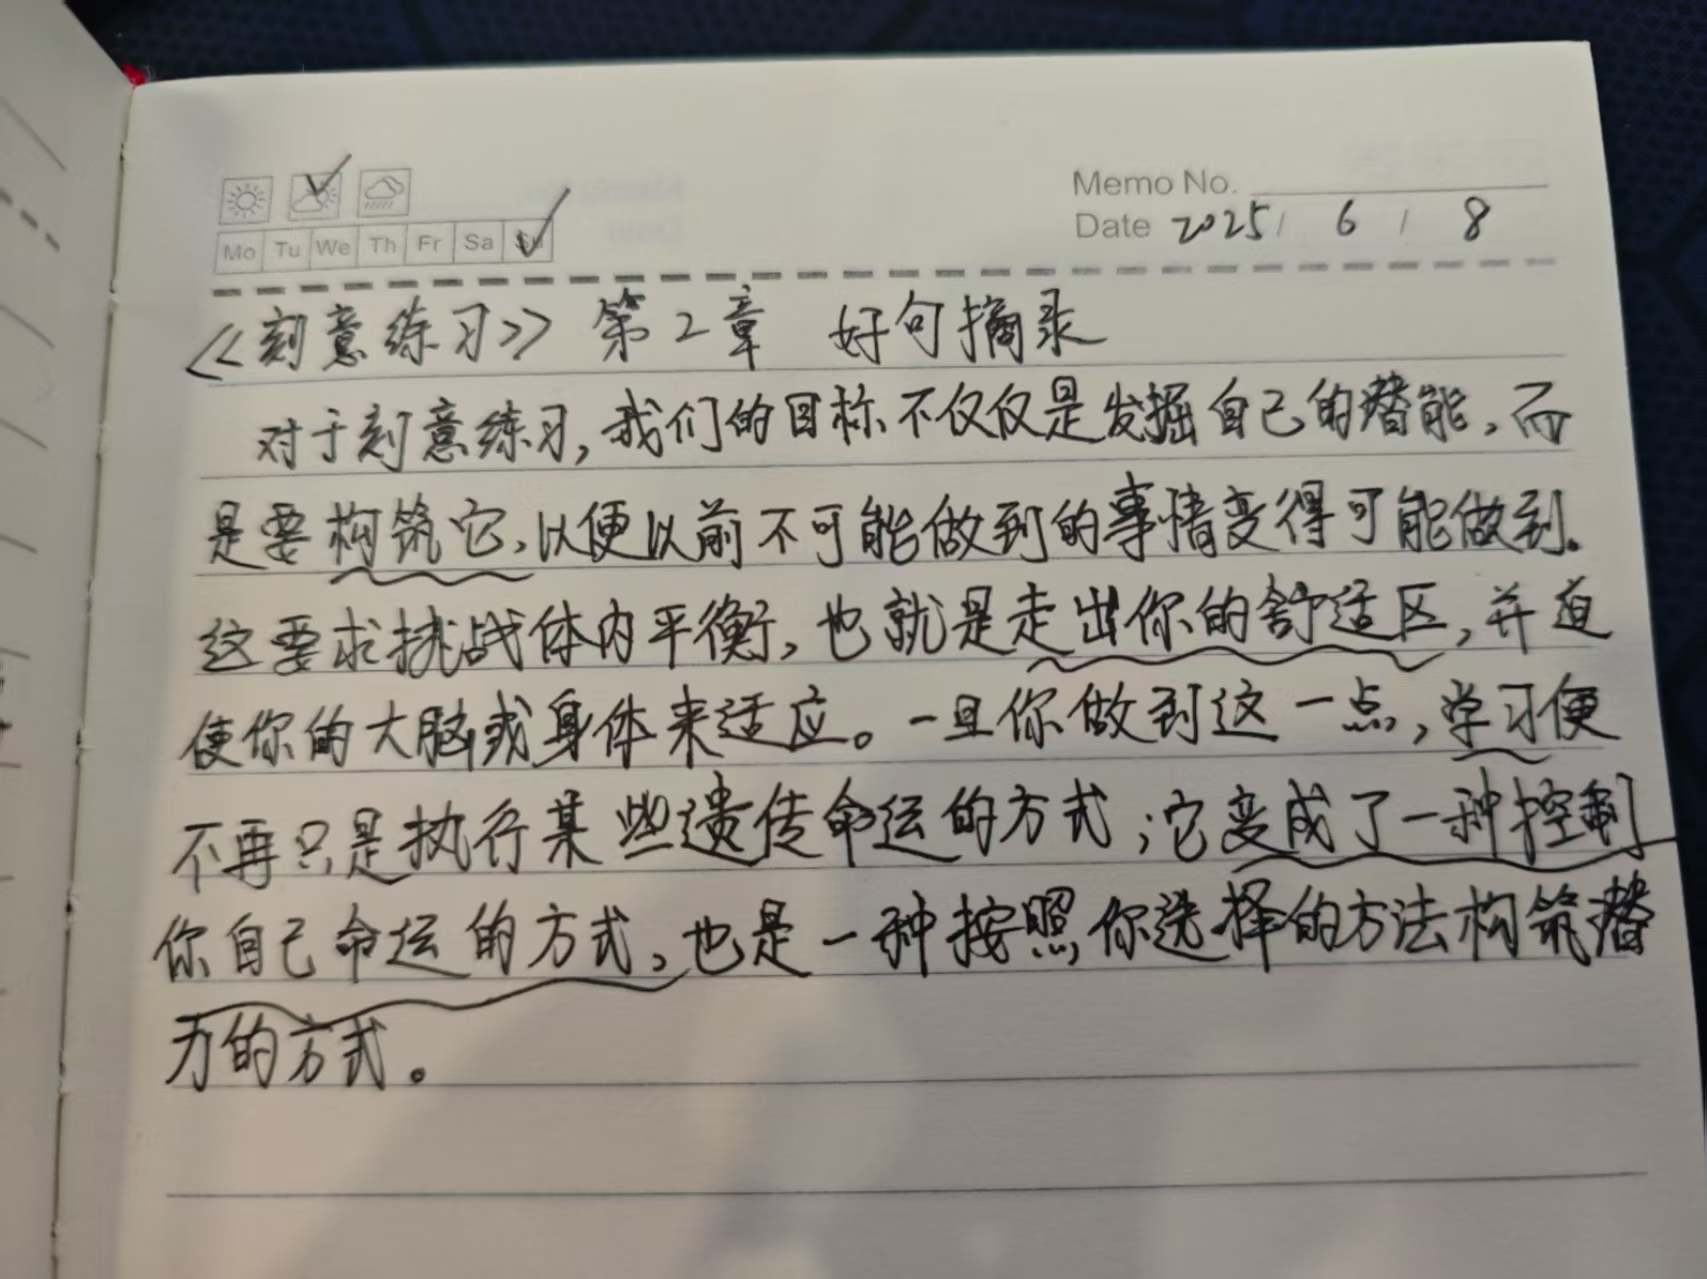 Memo No.
Date 2025/ 6 / 8
Mo Tu We Th Fr Sa Su
《刻意练习》 第2章 好句摘录
对于刻意练习,我们的目标不仅仅是发掘自己的潜能,而
是要构筑它,以便以前不可能做到的事情变得可能做到。
这要求挑战体内平衡,也就是走出你的舒适区,并迫
使你的大脑或身体来适应。一旦你做到这一点,学习便
不再只是执行某些遗传命运的方式;它变成了一种控制
你自己命运的方式,也是一种按照你选择的方法构筑潜
力的方式。